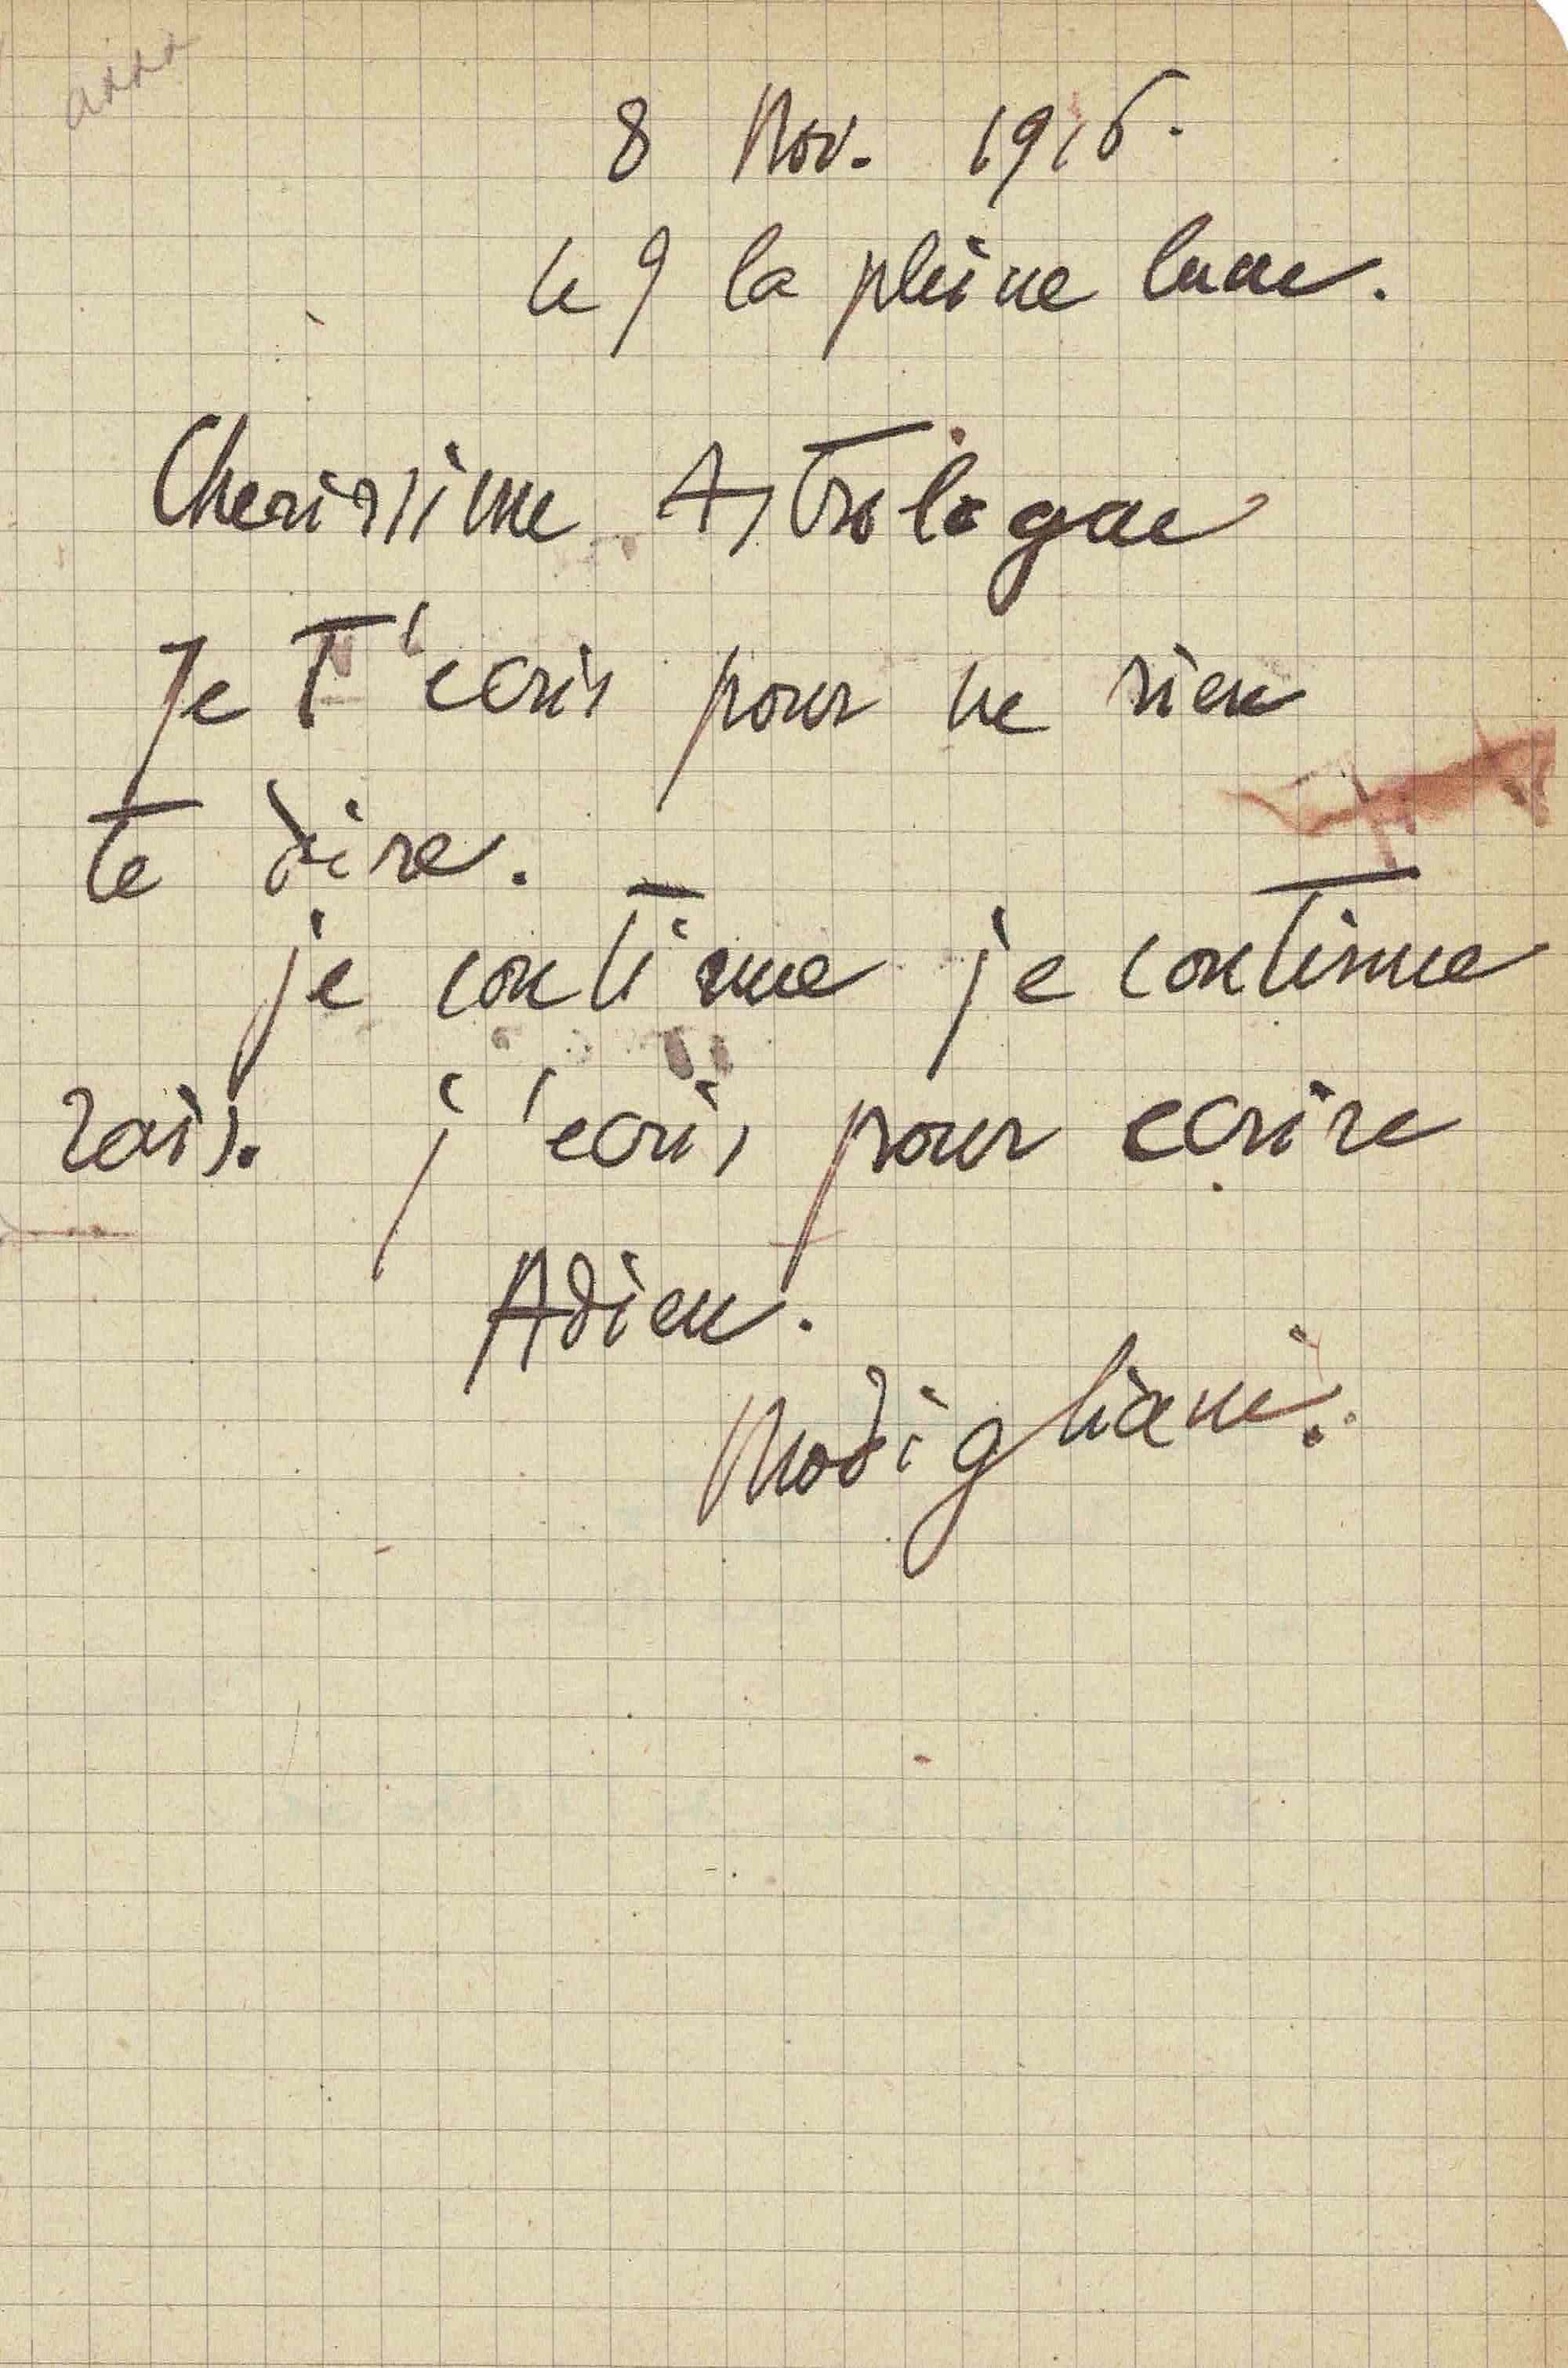 8 Nov. 1916.
le 9 la pleine lune.
Cherissime Astrologue
Je t'ecris pour ne rien
te dire.
je continue je continue
rais. j'ecris pour ecrire
Adieu.
Modigliani.